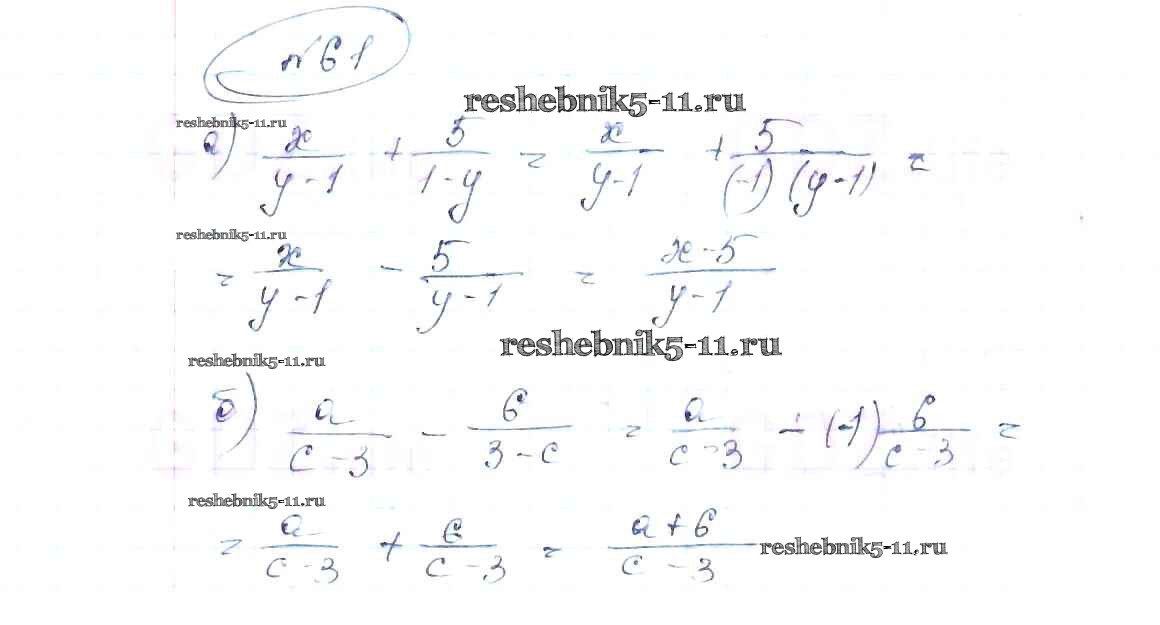 №61
reshebnik5-11.ru
reshebnik5-11.ru
а) x/(y-1) + 5/(1-y) = x/(y-1) + 5/((-1)(y-1)) =
reshebnik5-11.ru
= x/(y-1) - 5/(y-1) = (x-5)/(y-1)
reshebnik5-11.ru
reshebnik5-11.ru
б) a/(c-3) - 6/(3-c) = a/(c-3) - (-1) 6/(c-3) =
reshebnik5-11.ru
= a/(c-3) + 6/(c-3) = (a+6)/(c-3)
reshebnik5-11.ru